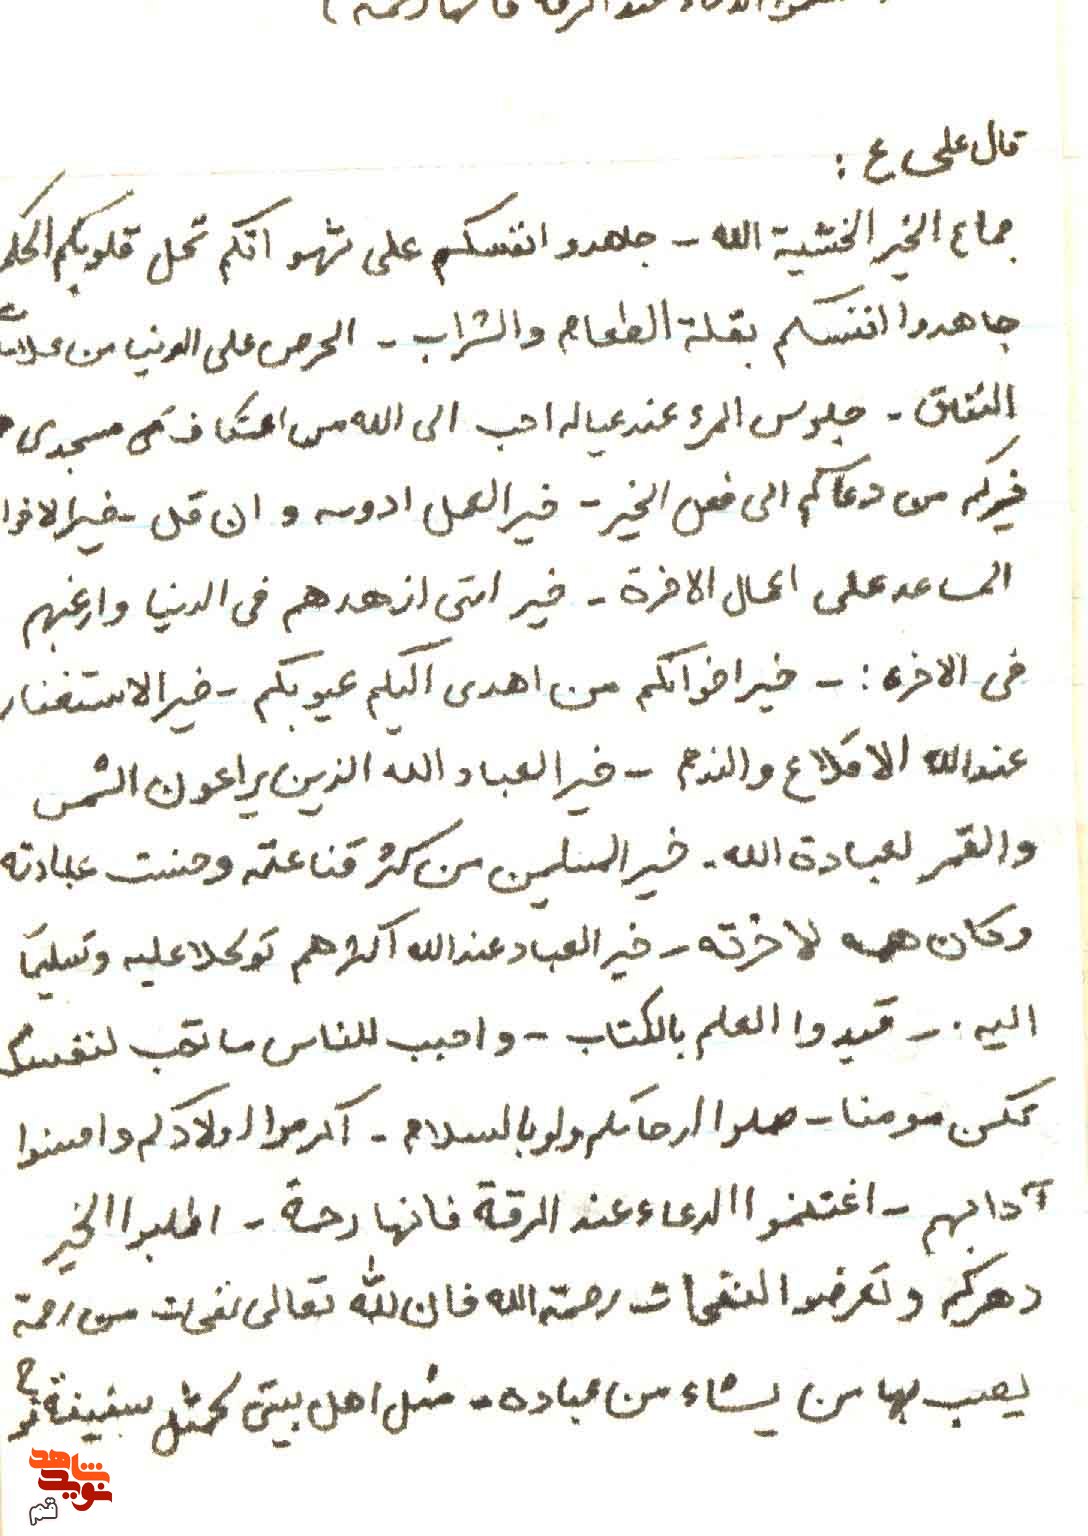 الدعاء عند الرقة فانها رحمة )
قال علی ع :
جماع الخیر الخشیة الله - جاهدوا انفسکم علی شهواتکم تحل قلوبکم
جاهدوا انفسکم بقلة الطعام والشراب - الحرص علی الدنیا من علامات
النفاق - جلوس المرء عند عیاله احب الی الله من اعتکاف فی مسجدی
خیرکم من دعاکم الی فعل الخیر - خیر العمل ادومه و ان قل - خیر الاخوا
المساعد علی اعمال الاخرة - خیر امتی ازهدهم فی الدنیا وارغبهم
فی الاخره : - خیر اخوانکم من اهدی الیکم عیوبکم - خیر الاستغفار
عندالله الاقلاع والندم - خیر العباد الله الذین یراعون الشمس
والقمر لعبادة الله - خیر المسلمین من کثر قناعته وحسنت عبادته
وکان همه لاخرته - خیر العباد عند الله اکثرهم توکلا علیه وتسلیماً
الیه . - قیدوا العلم بالکتاب - و احبب للناس ما تحب لنفسک
تکن مومنا - صلوا ارحامکم ولو بالسلام - اکرموا اولادکم واحسنوا
آدابهم - اغتنموا الدعاء عند الرقة فانها رحمة - اطلبوا الخیر
دهرکم و تعرضوا النفحات رحمة الله فان لله تعالی نفحات من رحمة
یصب بها من یشاء من عباده - مثل اهل بیتی کمثل سفینة نوح
نوید شاهد
قم